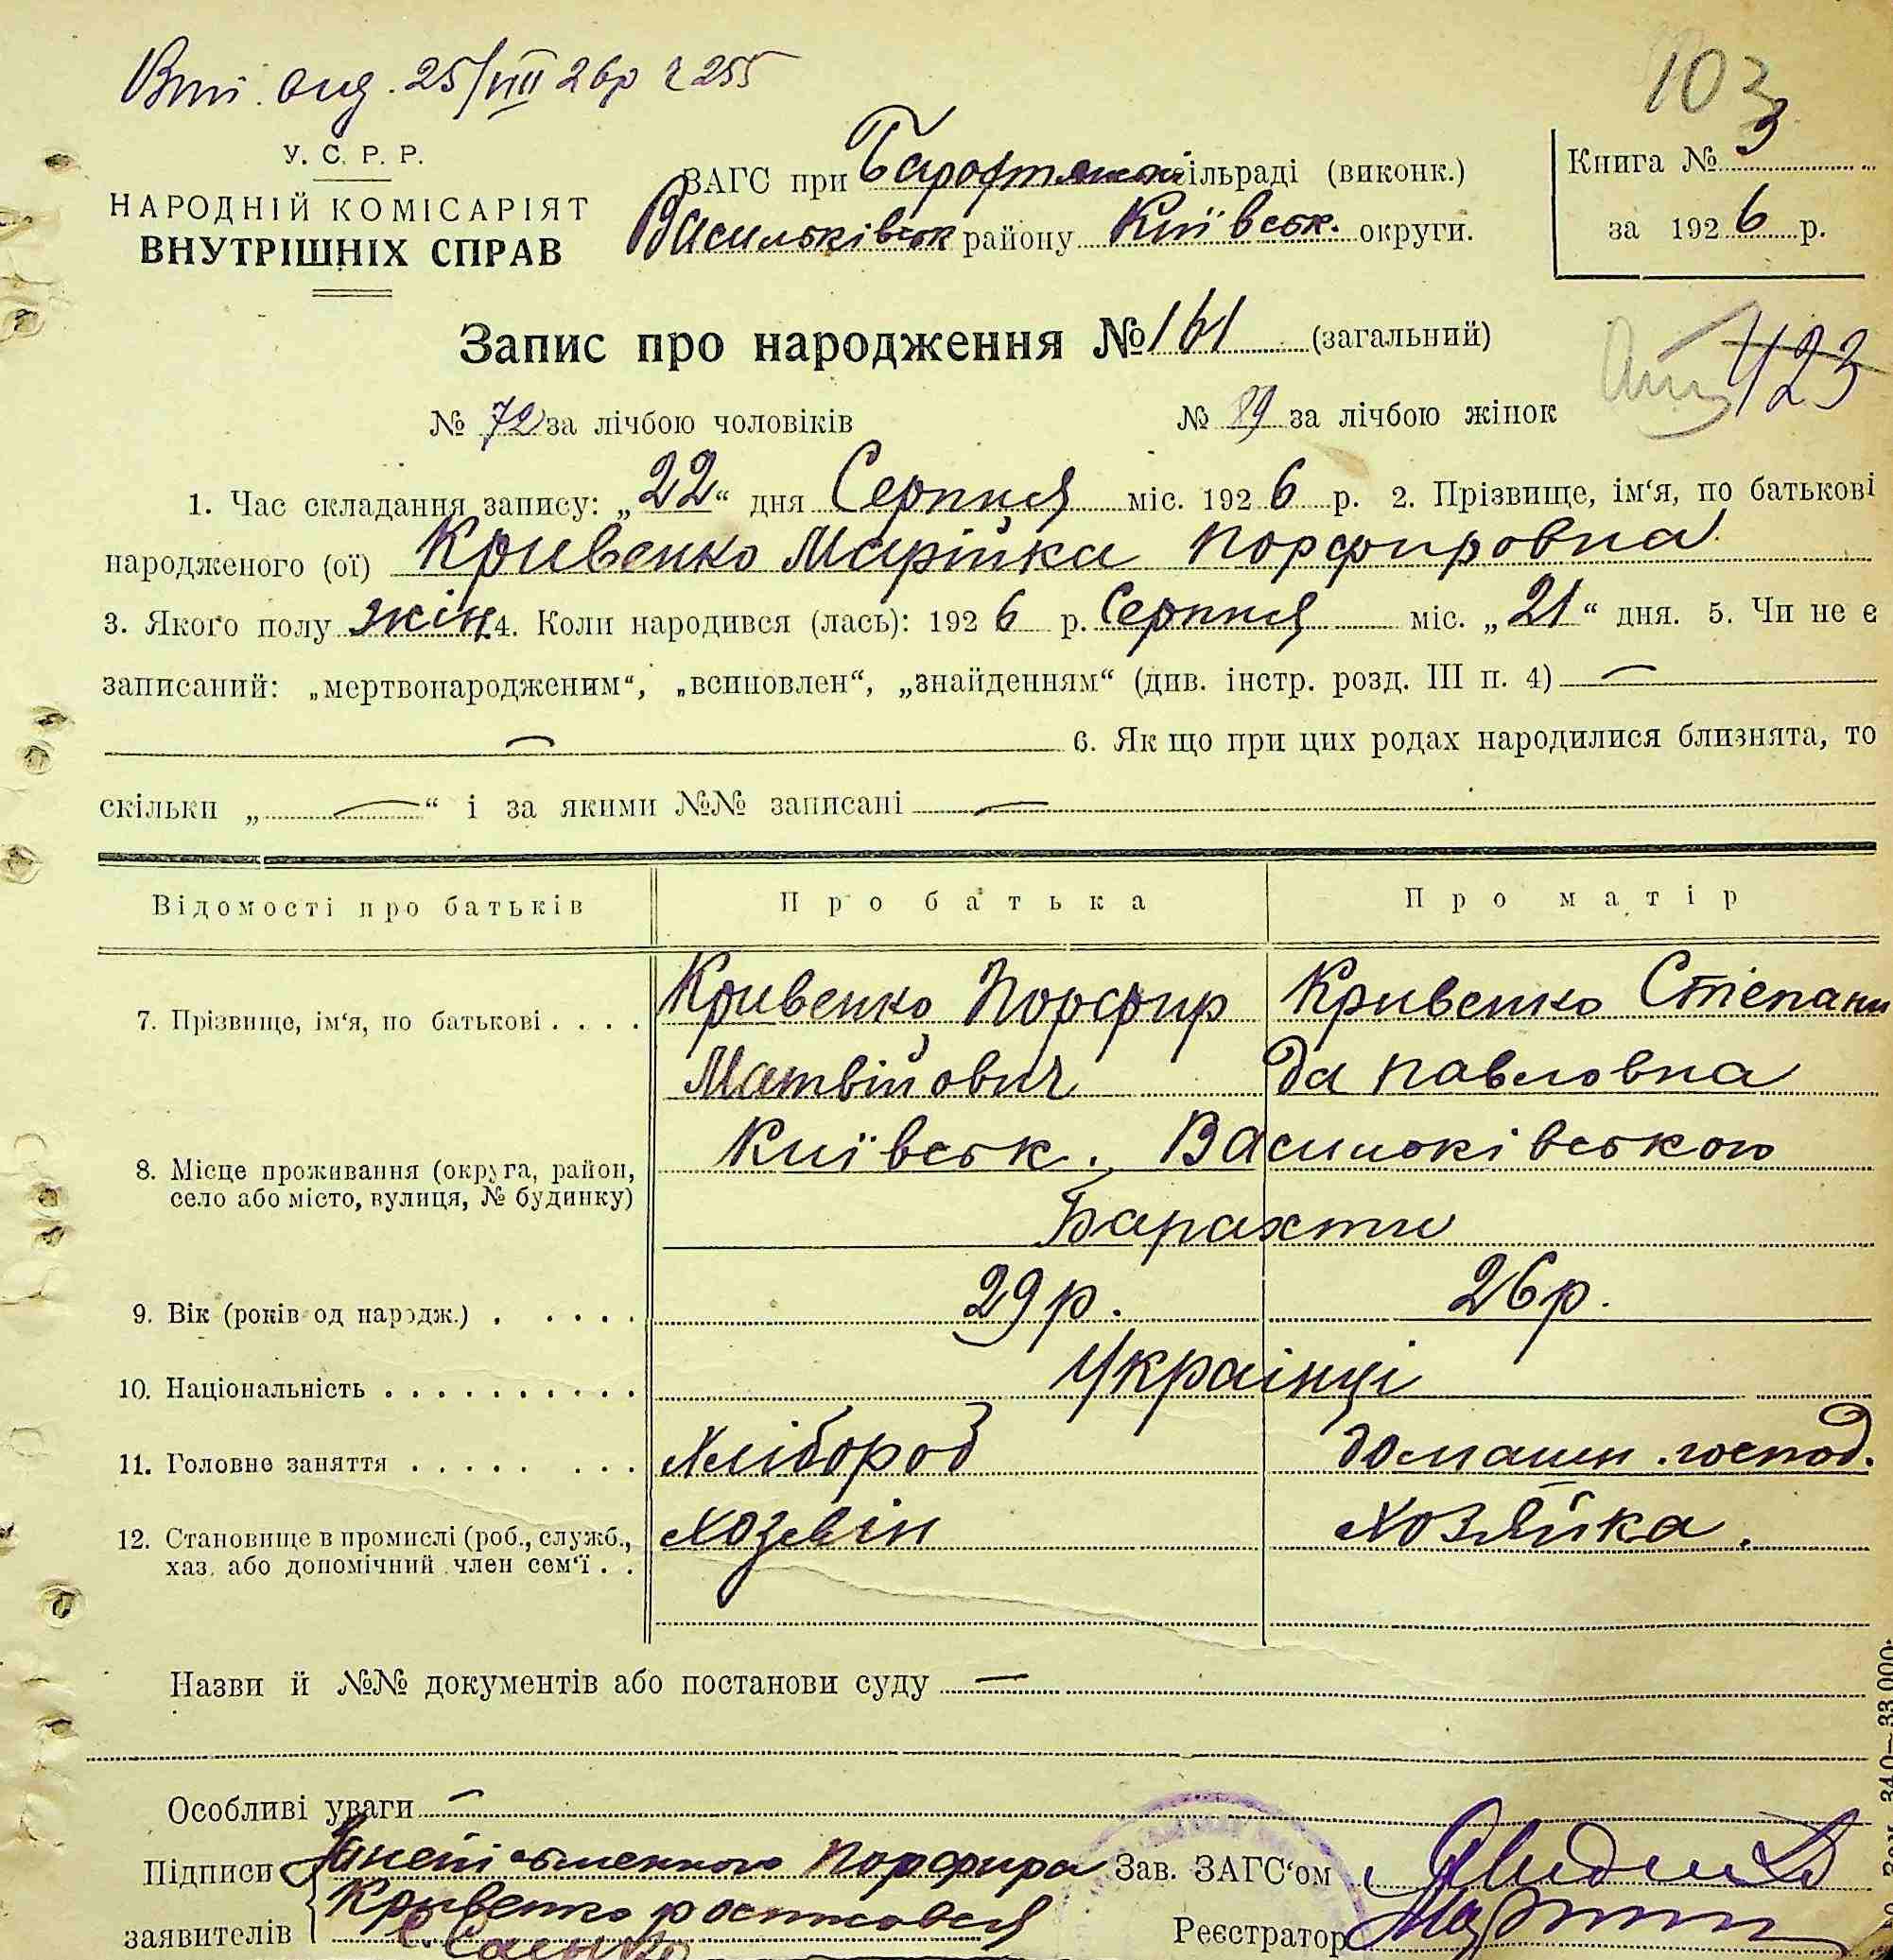 25/VIII 26р 255
103
У. С. Р. Р.
НАРОДНІЙ КОМІСАРІЯТ
ВНУТРІШНІХ СПРАВ
ВАГС при сільраді (виконк.)
Васильківськ району Київськ. округи.
Книга № 3
за 1926 р.
Запис про народження № 161 (загальний)
423
№ 72 за лічбою чоловіків № 89 за лічбою жінок
1. Час складання запису: „22“ дня Серпня міс. 1926 р. 2. Прізвище, ім‘я, по батькові
народженого (ої) Кривенко Марійка Порфировна
3. Якого полу жін. 4. Коли народився (лась): 1926 р. Серпня міс. „21“ дня. 5. Чи не є
записаний: „мертвонародженим“, „всиновлен“, „знайденням“ (див. інстр. розд. III п. 4) —
— 6. Як що при цих родах народилися близнята, то
скільки „—“ і за якими №№ записані —
Відомості про батьків Про батька Про матір
7. Прізвище, ім‘я, по батькові . . . . Кривенко Порфир Кривенко Степани
Матвійович да Павловна
8. Місце проживання (округа, район, село або місто, вулиця, № будинку) Київськ. Васильківського
Барахти
9. Вік (років од народж.) . . . . . 29 р. 26 р.
10. Національність . . . . . . . . . . Украінці
11. Головне заняття . . . . . . . . Хлібороб домашн. господ.
12. Становище в промислі (роб., служб., хаз. або допомічний член сем‘ї . . Хозяін Хозяйка.
Назви й №№ документів або постанови суду —
Особливі уваги —
Підписи заявителів Порфира
Кривенко росписався
Зав. ЗАГС‘ом
Реєстратор